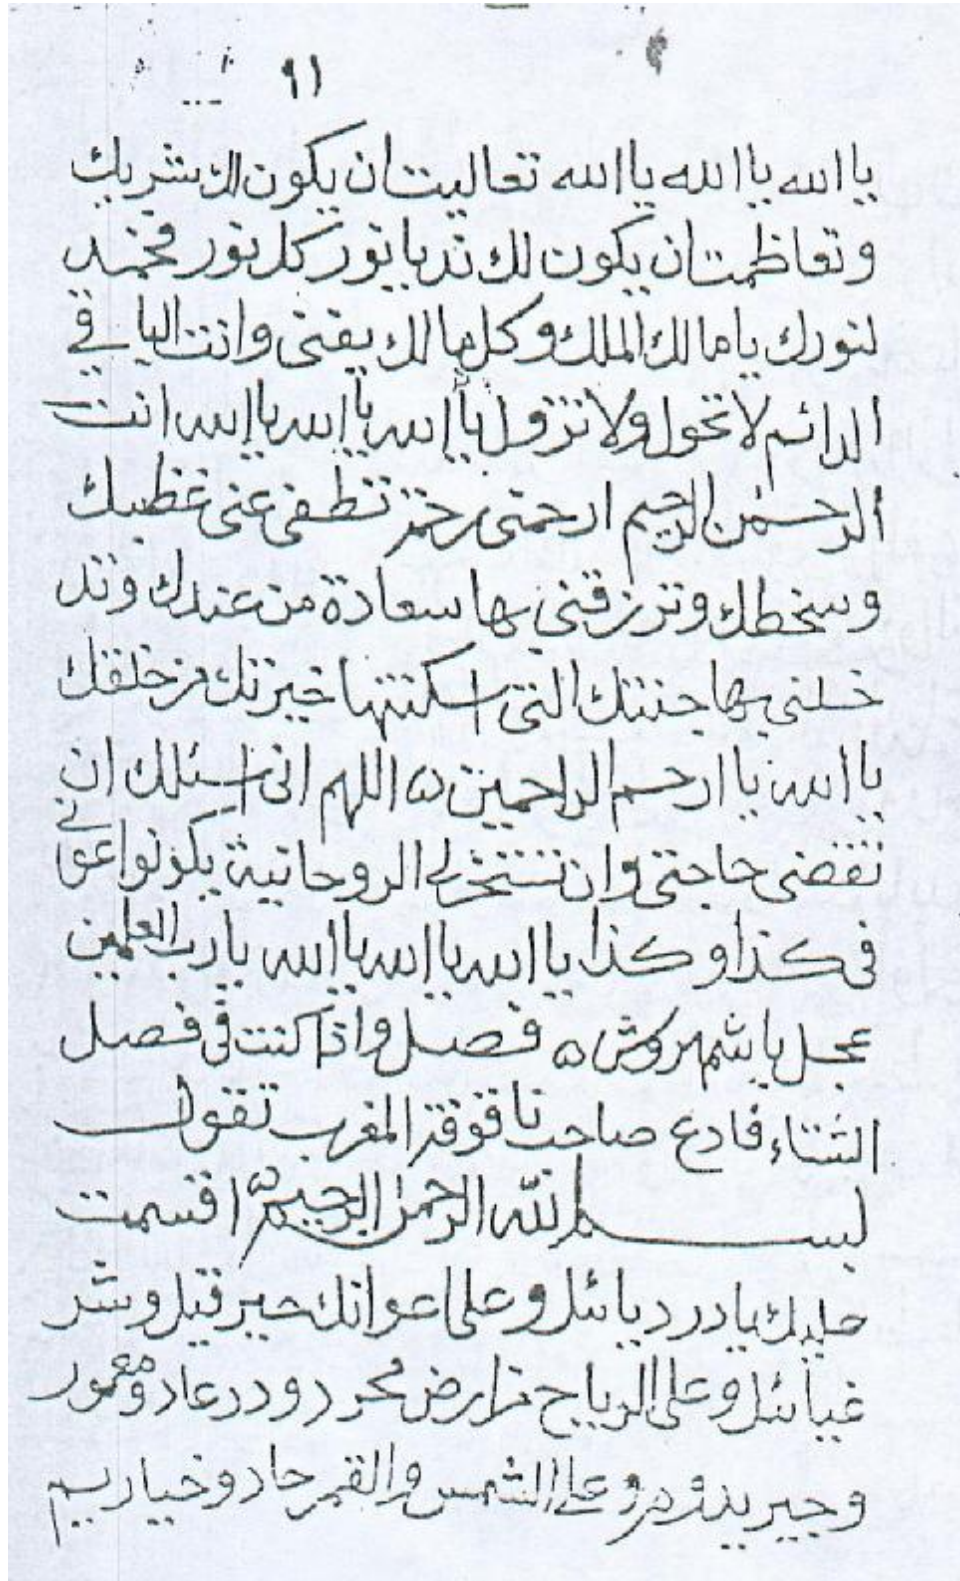 ٩١
يا الله يا الله يا الله تعاليت ان يكون لك شريك
وتعاظمت ان يكون لك ند يا نور كل نور فخمد
لنورك يا مالك الملك وكل مالك يفنى وانت الباقي
الدائم لا تحول ولا تزول يا الله يا الله يا الله انت
الرحمن الرحيم ارحمنى برحمة تطفى عنى غظبك
وسخطك وترزقني بها سعادة من عندك وتد
خلني بها جنتك التى اسكنتها خيرتك من خلقك
يا الله يا ارحم الراحمين ه اللهم انى اسئلك ان
تقضى حاجتى وان تسخر لي الروحانية يكونوا عوني
فى كذا وكذا يا الله يا الله يا الله يا رب العلمين
عجل يا شمهروش ه فصل واذا كنت في فصل
الشتاء فادع صاحب نافوقة المغرب تقول
بسم الله الرحمن الرحيم اقسمت
عليك يا دردیائل وعلى اعوانك حيرقيل وشر
غيائيل وعلى الرياح من ارض محر دودرعاد ومعمور
وعلى الشمس والقمر حاد وخياريم